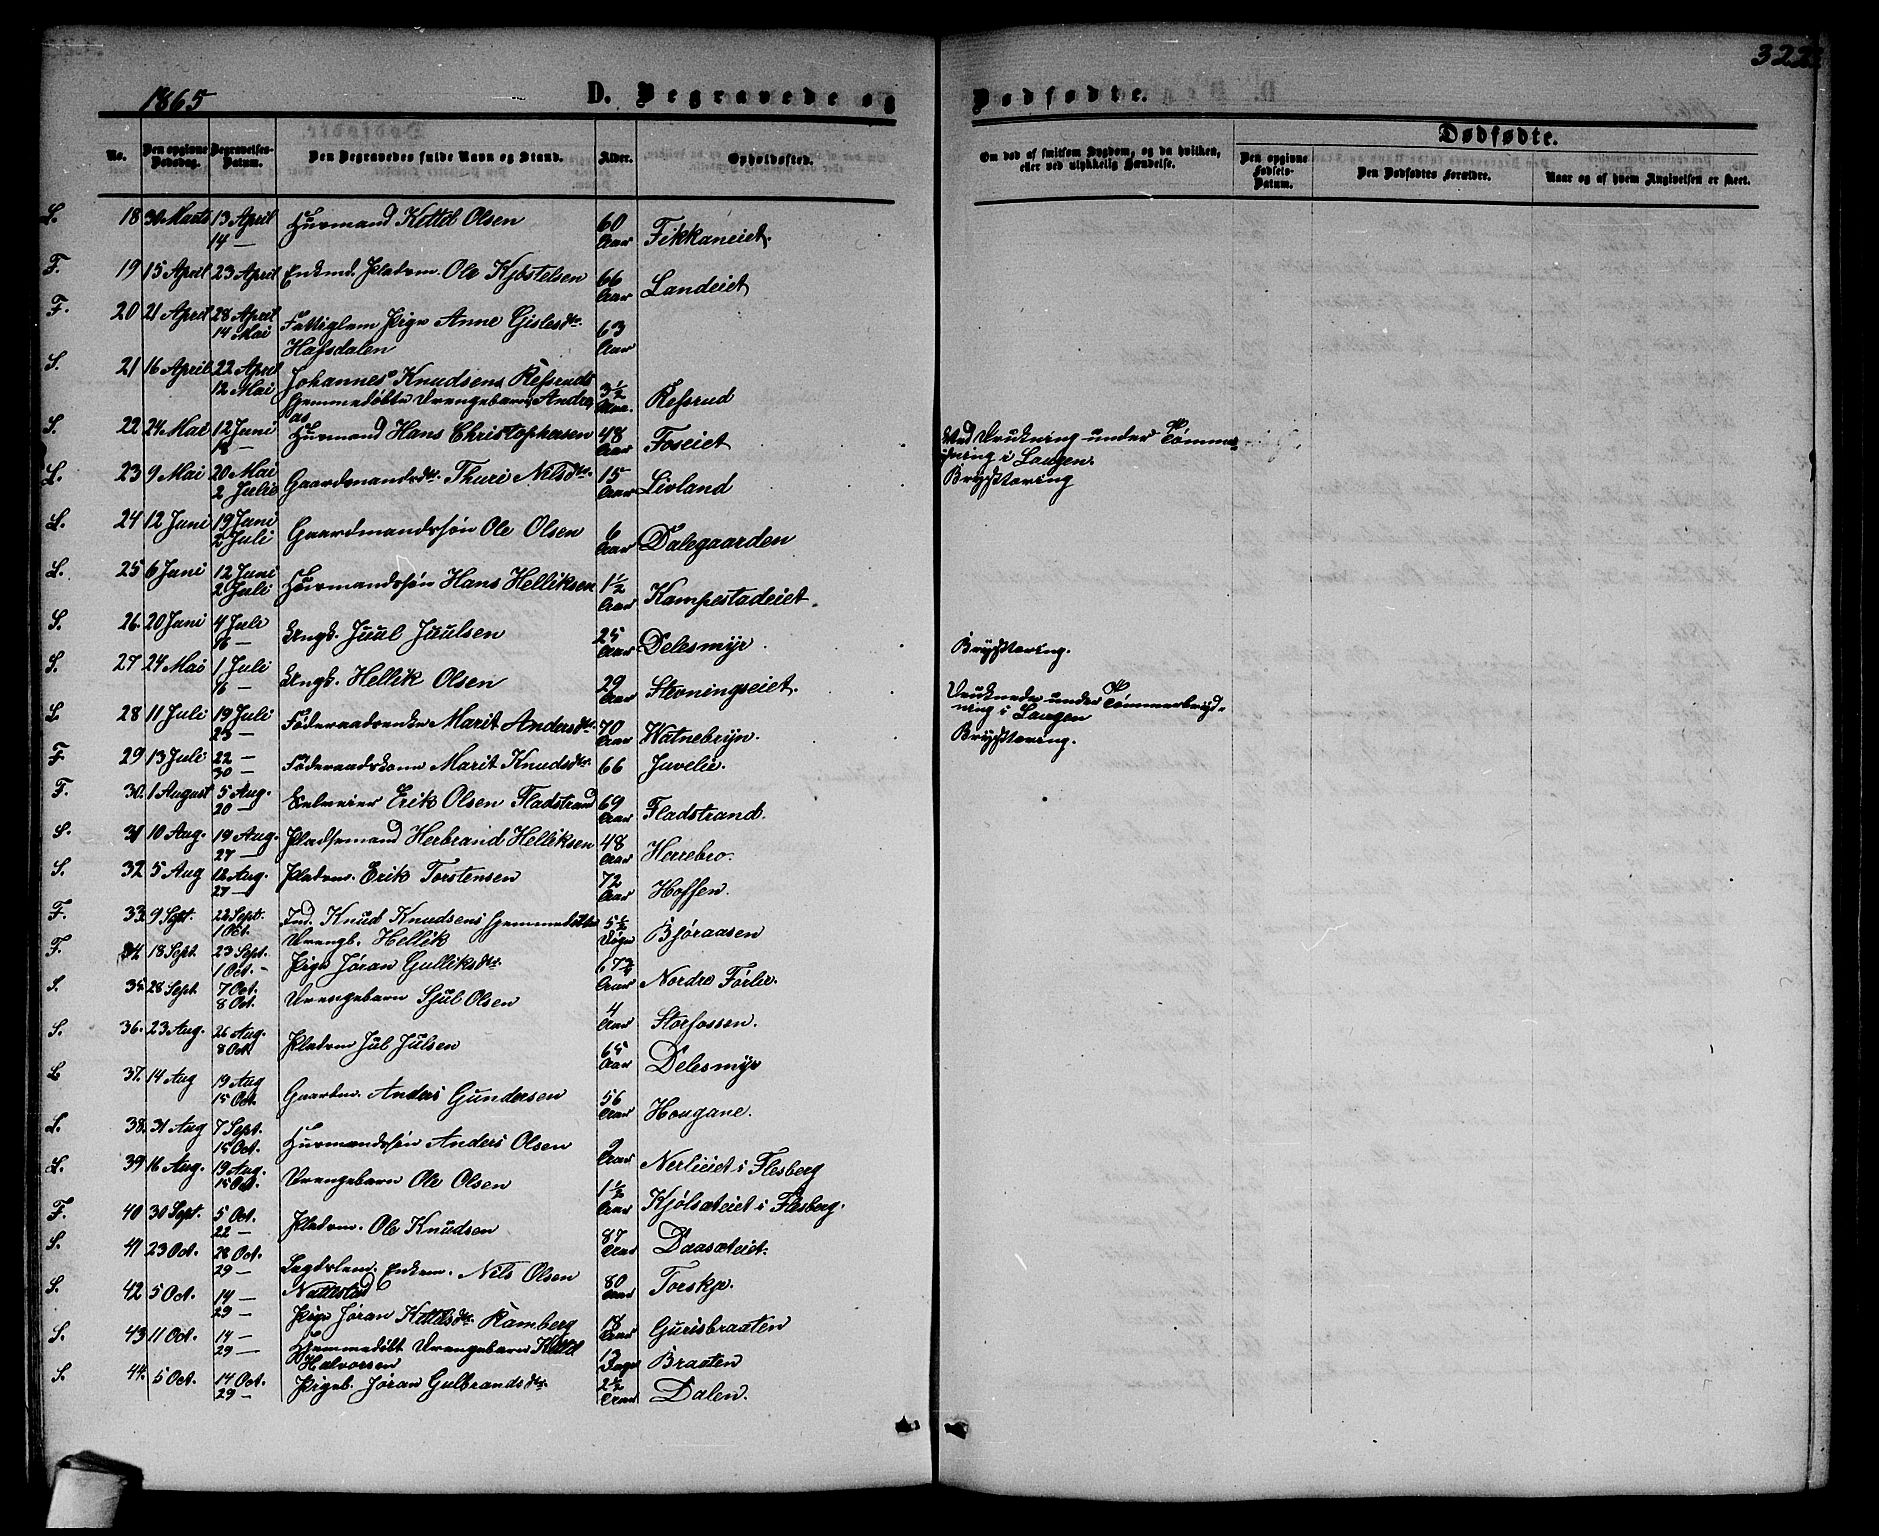 322
1865
D. Begravede og Dødfødte.
Dødfødte.
No. Den opgivne Dødsdag. Begravelses-Datum. Den Begravedes fulde Navn og Stand. Alder. Opholdssted. Om død af smitsom Sygdom, og da hvilken, eller ved ulykkelig Hændelse. Den opgivne Fødsels-Datum. Den Dødfødtes Forældre. Naar og af hvem Angivelsen er skeet.
L. 18 30 Marts 13 April Huusmand Kittil Olsen 60
14 — Aar Fikkaneiet.
F. 19 15 April 23 April Enkmd. Pladsm. Ole Kjöstelsen 66
Aar Landeiet
F. 20 21 April 28 April
14 Mai Fattiglem Pige Anne Gislesdtr. 63
Hafsdalen Aar
S. 21 16 April 22 April
12 Mai Johannes Knudsens Refsruds 3½
hjemmedøbte Drengebarn Andre Refsrud
as
S. 22 24 Mai 12 Juni Huusmand Hans Christophersen 48 Ved Drukning under Tømmer
18 — Aar Foseiet i Laagen.
L. 23 9 Mai 20 Mai Gaardmandsdtr. Thuri Nilsdtr. 15 Brystbetænding
2 Julie Aar Livland
L. 24 12 Juni 19 Juni
2 Juli Gaardmandssøn Ole Olsen 6
Aar Dalegaarden
L. 25 6 Juni 12 Juni
2 Juli Huusmandssøn Hans Helliksen 1½
Aar Kampestadeiet.
S. 26. 20 Juni 4 Juli
16 — Ungk. Juul Juulsen 25
Aar Delesmyr. 
S. 27 24 Mai 1 Juli
16 — Ungk. Hellik Olsen 29
Aar Stevningseiet. Druknede under Tømmerbryd-
ning i Laagen
L 28 11 Juli 19 Juli
23 — Föderaadsenke Marit Andersdtr. 70
Aar Watnebryn.
F 29 13 Juli 22 —
30 — Föderaadskone Marit Knudsdtr. 66 Juvelie.
F. 30. 1 August 5 Aug.
20 — Selveier Erik Olsen Fladstrand 69
Aar Fladstrand.
S. 31 10 Aug. 19 Aug.
27 — Pladsemand Herbrand Helliksen 48
Aar Herrebro.
S. 32 5 Aug 12 Aug.
27 — Pladsm. Erik Torstensen 72
Aar Hoffen.
F. 33. 9 Sept. 22 Sept.
1 Oct. Ind. Knud Knudsens hjemmedøbte 5½
Drengb. Hellik Uger Bjøraasen
F. 34 18 Sept. 23 Sept.
1 Oct. — Pige Jöran Gulliksdtr. 67¾
Aar Nordre Førlie.
S. 35. 28 Sept. 7 Oct.
8 Oct. Drengebarn Sjul Olsen 4
Aar Storfossen.
S. 36. 23 Aug. 26 Aug.
8 Oct. Pladsm Jul Julsen 65
Aar Delesmyr
L 37. 14 Aug 19 Aug
15 Oct. Gaardm. Anders Gundersen 56
Aar Hougane.
L. 38. 31 Aug 7 Sept.
15 Oct. Huusmandssøn Anders Olsen 9
Aar Nerlieiet i Flesberg
L. 39 16 Aug. 19 Aug.
15 Oct. Drengebarn Ole Olsen 1½
Aar Kjölsæteiet i Flesberg.
F. 40 30 Sept. 5 Oct.
22 — Pladsm. Ole Knudsen 87
Aar Daasæteiet.
S. 41 23 Oct. 28 Oct.
29 — Lagdslem. Enkem. Nils Olsen 80
Nattestad Aar Torskje.
S. 42 5 Oct. 14 —
29 — Pige Jøran Kittilsdtr. Ramberg 18
Aar Gurisbraaten
S. 43 11 Oct. 14 —
29 — Hjemmedøbt Drengebarn Kittil 13
Halvorsen Dage Braaten
S. 44. 5 Oct. 14 Oct.
29 — Pigeb. Jøran Gulbrandsdtr. 2½
Aar Dalen.